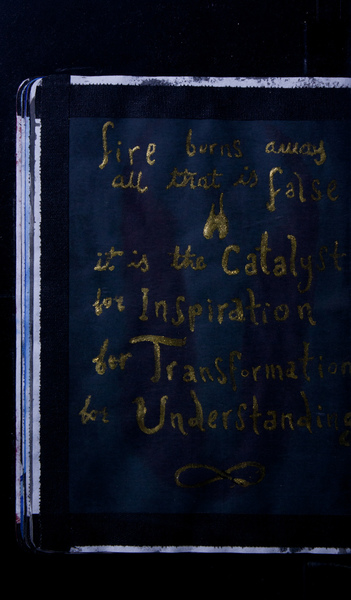 fire burns away
all that is false
it is the Catalyst
for Inspiration
for Transformation
for Understanding